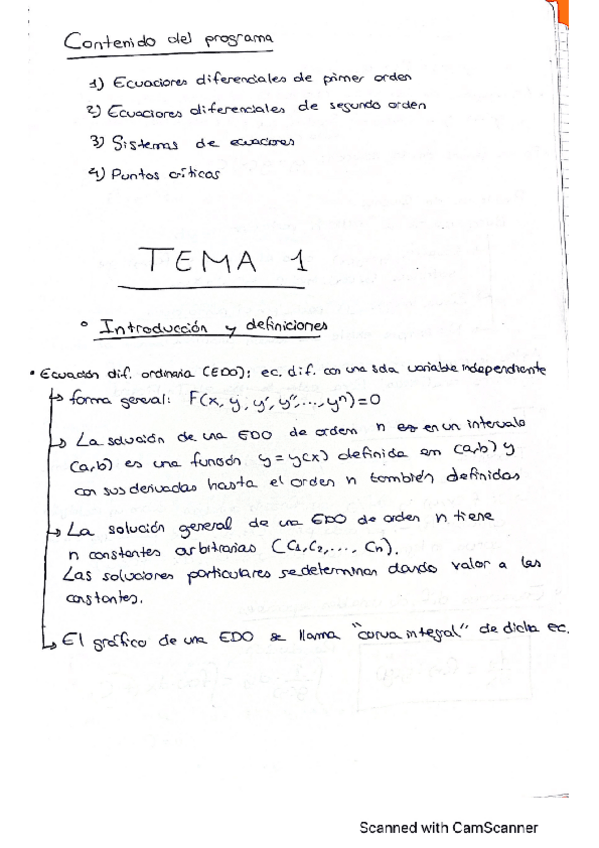 Contenido del programa
1) Ecuaciones diferenciales de primer orden
2) Ecuaciones diferenciales de segundo orden
3) Sistemas de ecuaciones
4) Puntos críticos
TEMA 1
° Introducción y definiciones
• Ecuación dif. ordinaria (EDO): ec. dif. con una sola variable independiente
↳ forma general: F(x, y, y', y'',..., yⁿ)=0
↳ La solución de una EDO de orden n en un intervalo
(a,b) es una función y = y(x) definida en (a,b) y
con sus derivadas hasta el orden n también definidas
↳ La solución general de una EDO de orden n tiene
n constantes arbitrarias (C₁, C₂, ..., Cn).
Las soluciones particulares se determinan dando valor a las
constantes.
↳ El gráfico de una EDO se llama "curva integral" de dicha ec.
Scanned with CamScanner